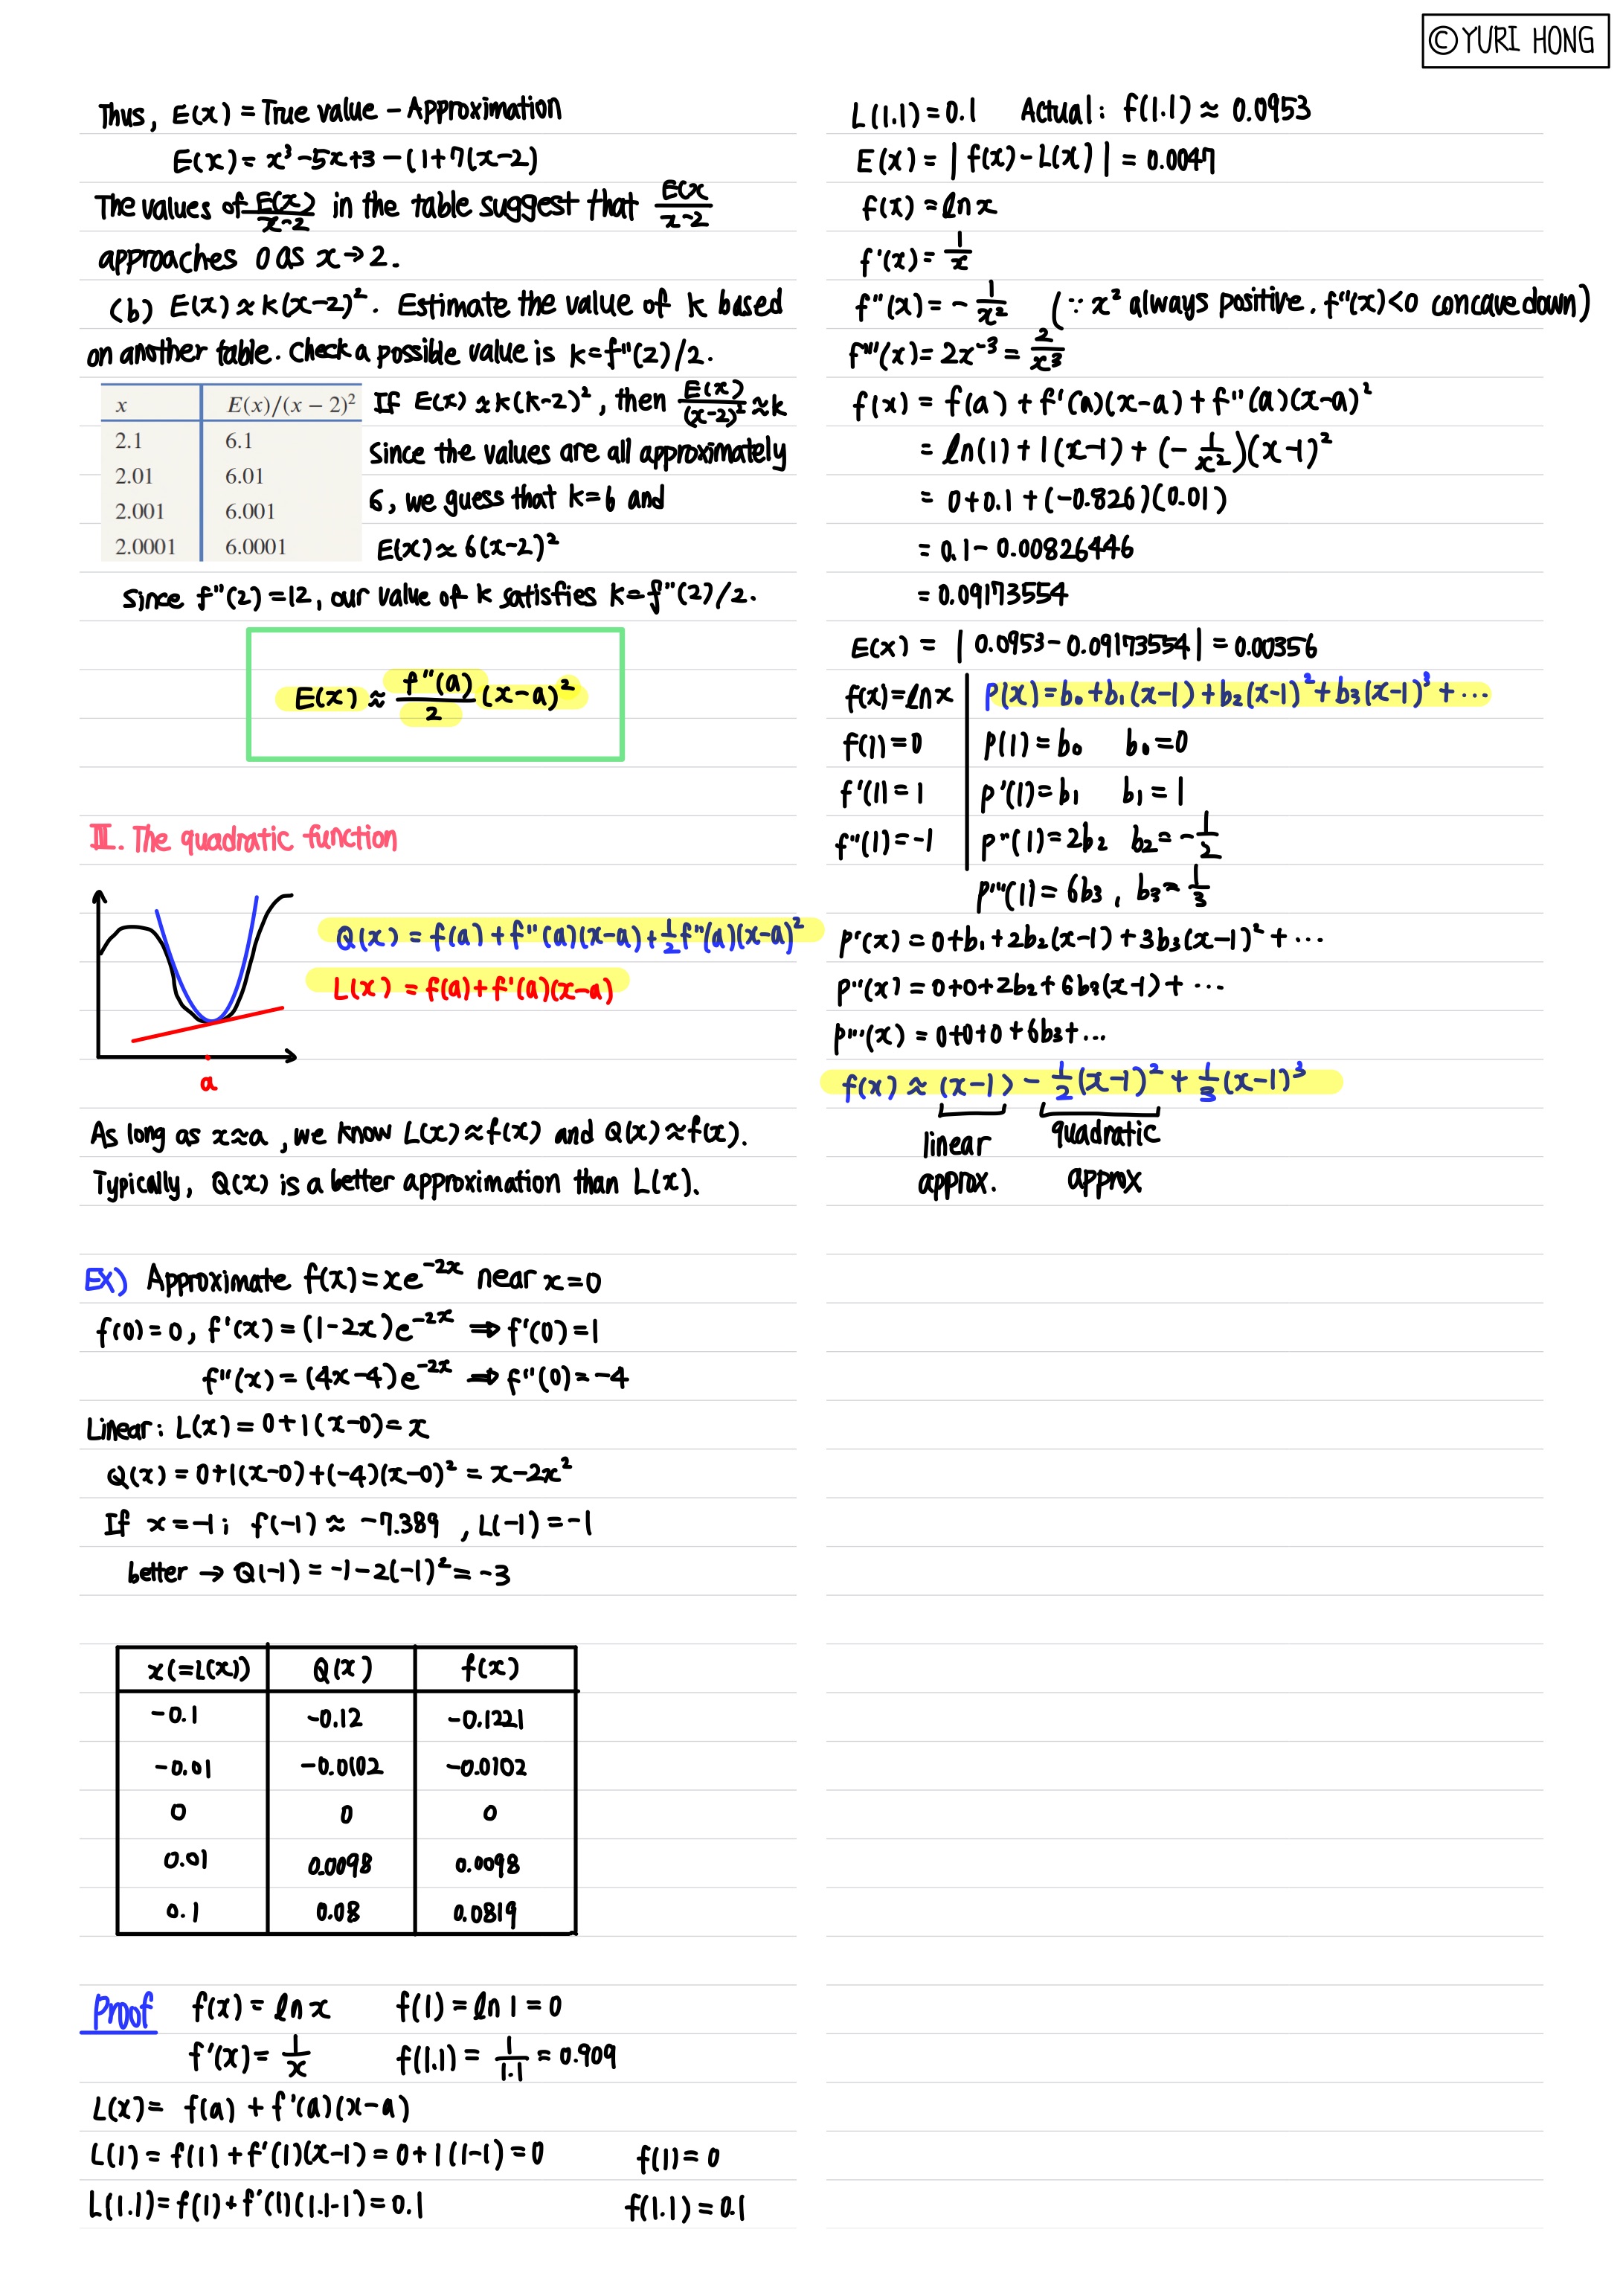 © YURI HONG
Thus, E(x) = True value − Approximation
E(x) = x³−5x+3 − (1+7(x−2)
The values of E(x)/x−2 in the table suggest that E(x/x−2
approaches 0 as x→2.
(b) E(x) ≈ k(x−2)². Estimate the value of k based
on another table. Check a possible value is k=f''(2)/2.
x E(x)/(x − 2)²
2.1 6.1
2.01 6.01
2.001 6.001
2.0001 6.0001
If E(x) ≈ k(k−2)², then E(x)/(x−2)² ≈ k
Since the values are all approximately
6, we guess that k=6 and
E(x) ≈ 6(x−2)²
Since f''(2)=12, our value of k satisfies k=f''(2)/2.
E(x) ≈ f''(a)/2 (x−a)²
III. The quadratic function
Q(x) = f(a) + f''(a)(x−a)+½f''(a)(x−a)²
L(x) = f(a)+f'(a)(x−a)
a
As long as x≈a, we know L(x)≈f(x) and Q(x)≈f(x).
Typically, Q(x) is a better approximation than L(x).
EX) Approximate f(x)=xe⁻²ˣ near x=0
f(0)=0, f'(x)=(1−2x)e⁻²ˣ ⇒ f'(0)=1
f''(x)=(4x−4)e⁻²ˣ ⇒ f''(0)=−4
Linear: L(x)=0+1(x−0)=x
Q(x) = 0+1(x−0)+(−4)(x−0)² = x−2x²
If x=−1; f(−1) ≈ −7.389, L(−1)=−1
better → Q(−1) = −1−2(−1)²=−3
x(=L(x)) Q(x) f(x)
−0.1 −0.12 −0.1221
−0.01 −0.0102 −0.0102
0 0 0
0.01 0.0098 0.0098
0.1 0.08 0.0819
Proof f(x) = ln x f(1) = ln 1 = 0
f'(x) = 1/x f(1.1) = 1/1.1 = 0.909
L(x)= f(a) + f'(a)(x−a)
L(1) = f(1) + f'(1)(x−1) = 0+1(1−1)=0 f(1)=0
L(1.1)=f(1)+f'(1)(1.1−1)=0.1 f(1.1)=0.1
L(1.1)=0.1 Actual: f(1.1) ≈ 0.0953
E(x) = | f(x)−L(x) | = 0.0047
f(x) = ln x
f'(x) = 1/x
f''(x) = − 1/x² (∵ x² always positive. f''(x)<0 concave down)
f'''(x) = 2x⁻³ = 2/x³
f(x) = f(a) + f'(a)(x−a) + f''(a)(x−a)²
= ln(1) + 1(x−1) + (−1/x²)(x−1)²
= 0+0.1+(−0.826)(0.01)
= 0.1−0.00826446
= 0.09173554
E(x) = | 0.0953−0.09173554 | = 0.00356
f(x)=ln x P(x) = b₀+b₁(x−1)+b₂(x−1)²+b₃(x−1)³+⋯
f(1)=0 P(1)=b₀ b₀=0
f'(1)=1 P'(1)=b₁ b₁=1
f''(1)=−1 P''(1)=2b₂ b₂=−1/2
P'''(1)=6b₃, b₃=1/3
P'(x) = 0+b₁+2b₂(x−1)+3b₃(x−1)²+⋯
P''(x) = 0+0+2b₂+6b₃(x−1)+⋯
P'''(x) = 0+0+0+6b₃+⋯
f(x) ≈ (x−1) − 1/2(x−1)² + 1/3(x−1)³
linear quadratic
approx. approx